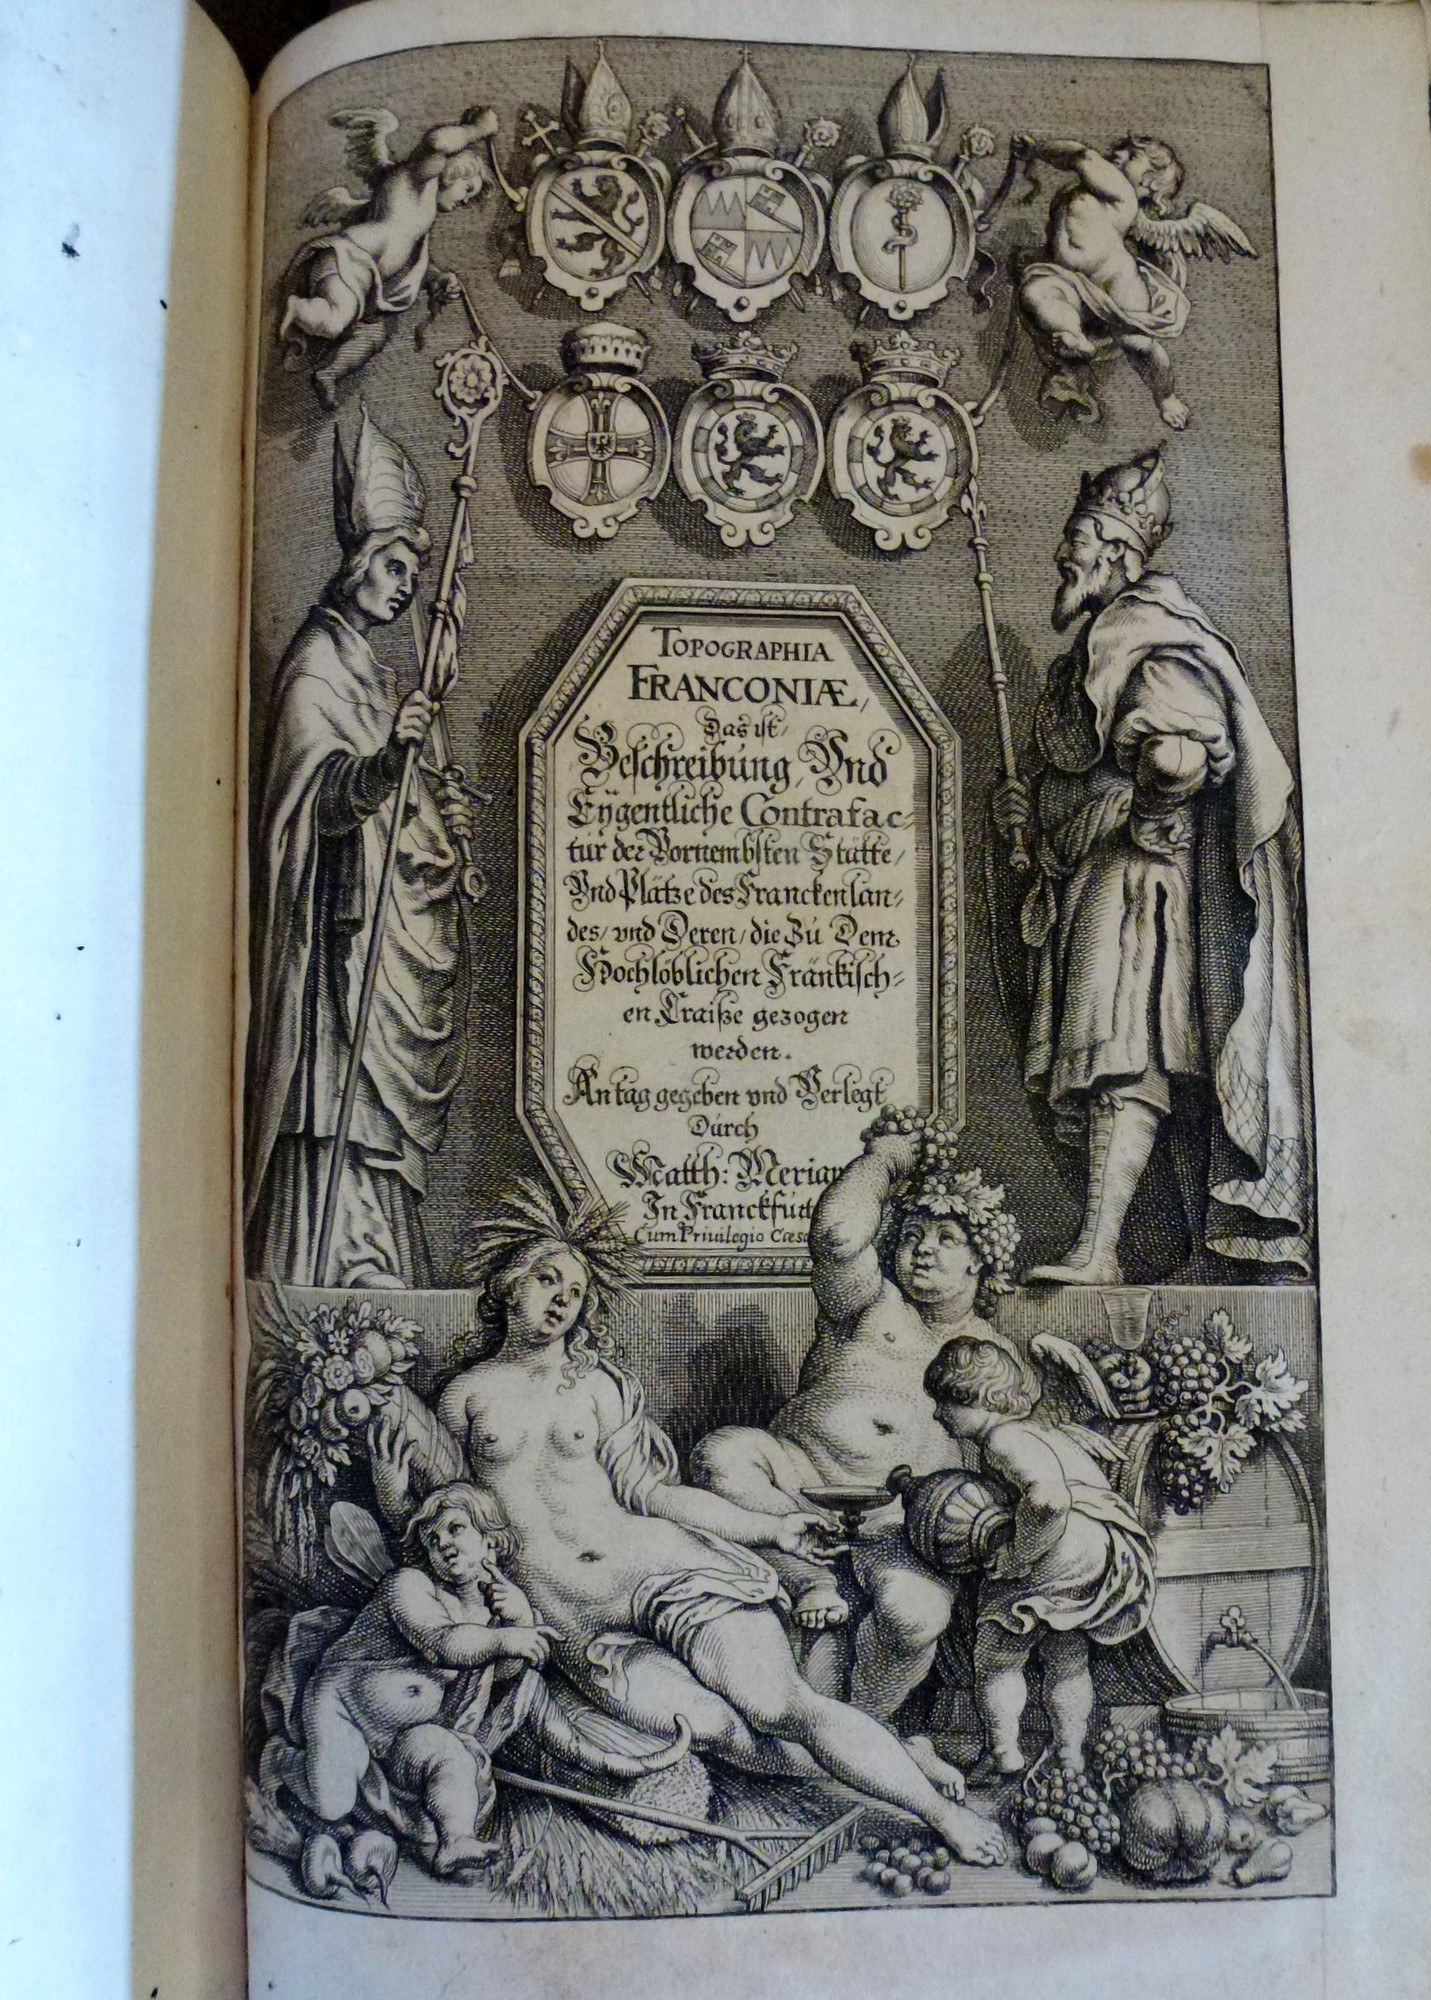 TOPOGRAPHIA
FRANCONIÆ,
Das ist/
Beschreibung, Vnd
Eÿgentliche Contrafac-
tur der Vornembsten Stätte/
Vnd Plätze des Franckenlan-
des/ vnd Deren/ die Zu Dem
Hochlöblichen Fränkisch-
en Craiße gezogen
werden.
An tag gegeben vnd Verlegt
Durch
Matth: Merian
In Franckfurt
Cum Priuilegio Cæsa